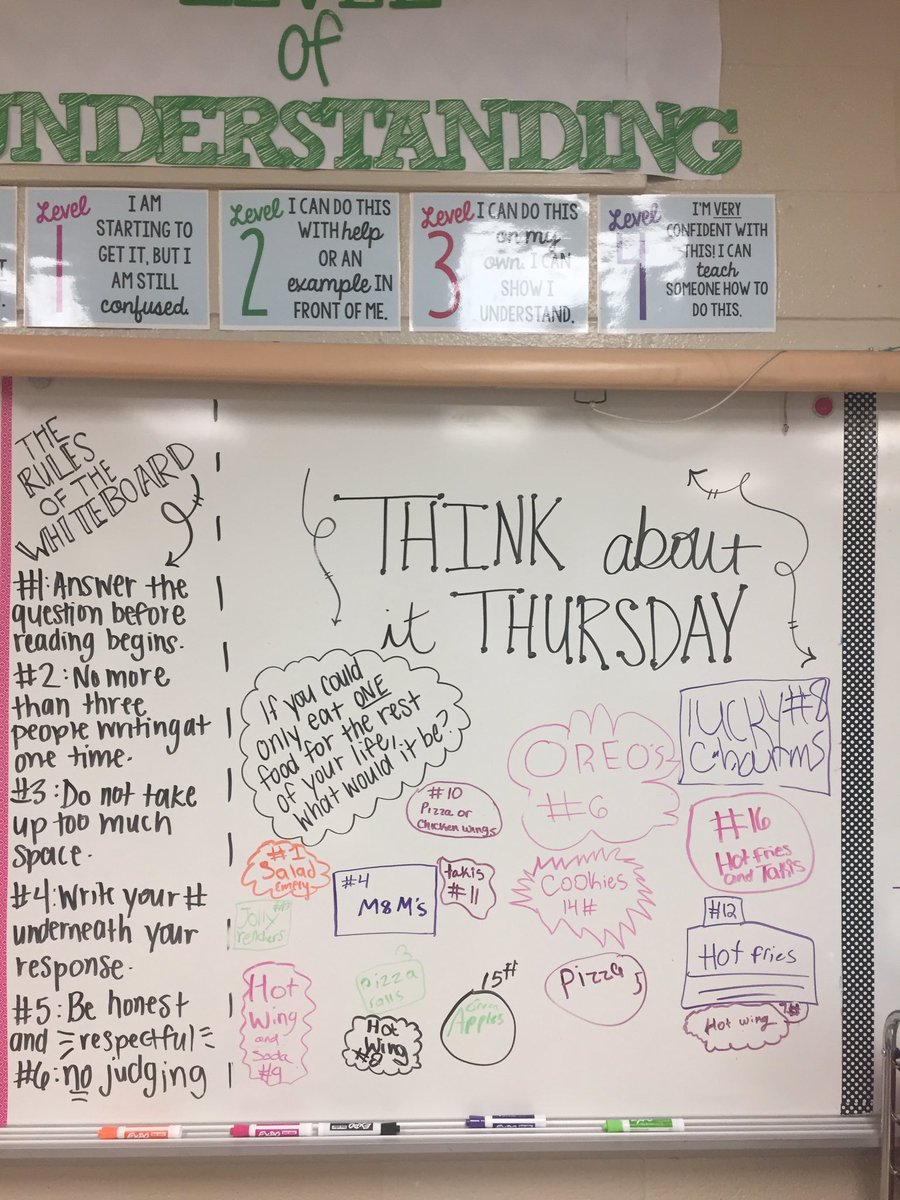 LEVEL
of
UNDERSTANDING
Level
1
I AM
STARTING TO
GET IT, BUT I
AM STILL
confused.
Level
2
I CAN DO THIS
WITH help
OR AN
example IN
FRONT OF ME.
Level
3
I CAN DO THIS
on my
own. I CAN
SHOW I
UNDERSTAND.
Level
4
I'M VERY
CONFIDENT WITH
THIS! I CAN
teach
SOMEONE HOW TO
DO THIS.
THE
RULES
OF THE
WHITEBOARD
#1: Answer the
question before
reading begins.
#2: No more
than three
people writing at
one time.
#3: Do not take
up too much
space.
#4: Write your #
underneath your
response.
#5: Be honest
and respectful
#6: no judging
THINK about
it THURSDAY
If you could
only eat ONE
food for the rest
of your life,
what would it be?
OREO's
#6
LUCKY #8
Charms
#10
Pizza or
Chicken wings
#16
Hot fries
and Takis
#1
Salad
#4
M&M's
takis
#11
Cookies
14#
Jolly
#12
Hot fries
Hot
Wing
and
Soda
#9
pizza
rolls
15#
Green
Apples
Pizza
5
Hot
Wing
#8
Hot wing
EXPO
EXPO
EXPO
EXPO
EXPO